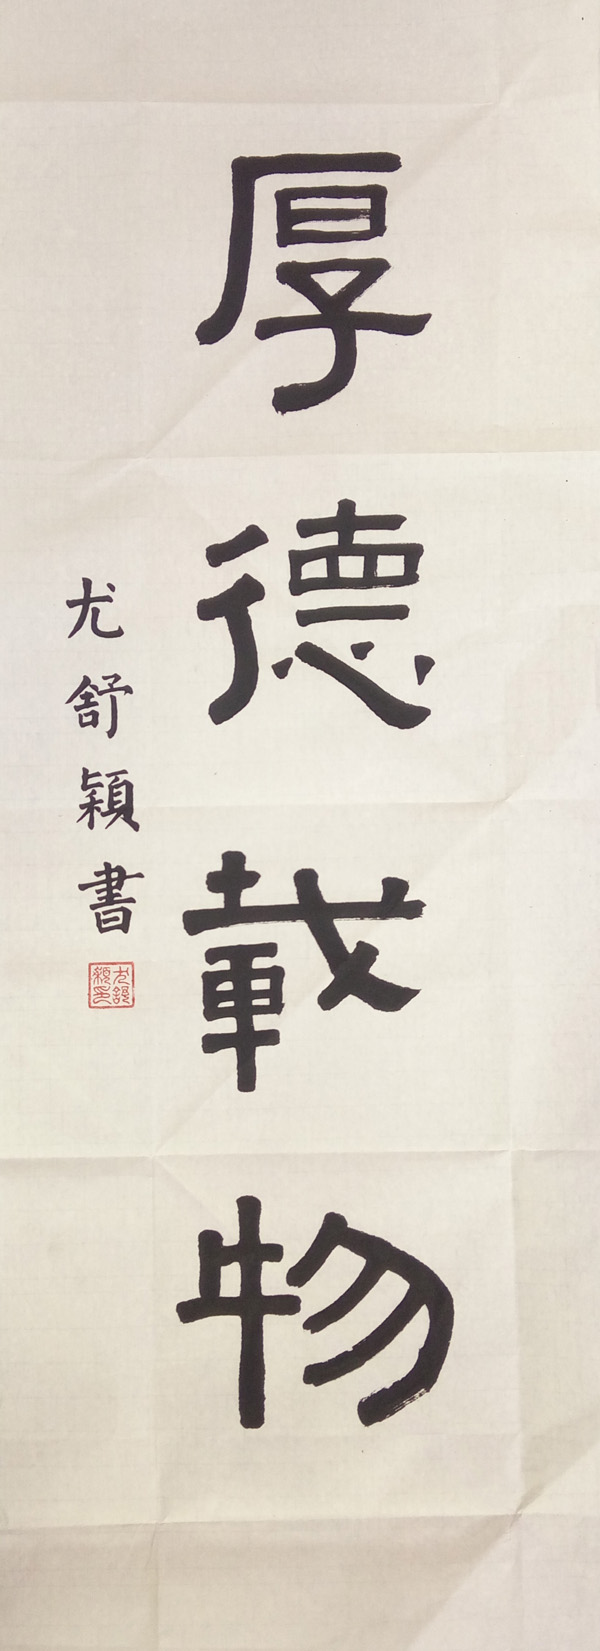 厚德載物
尤舒穎書